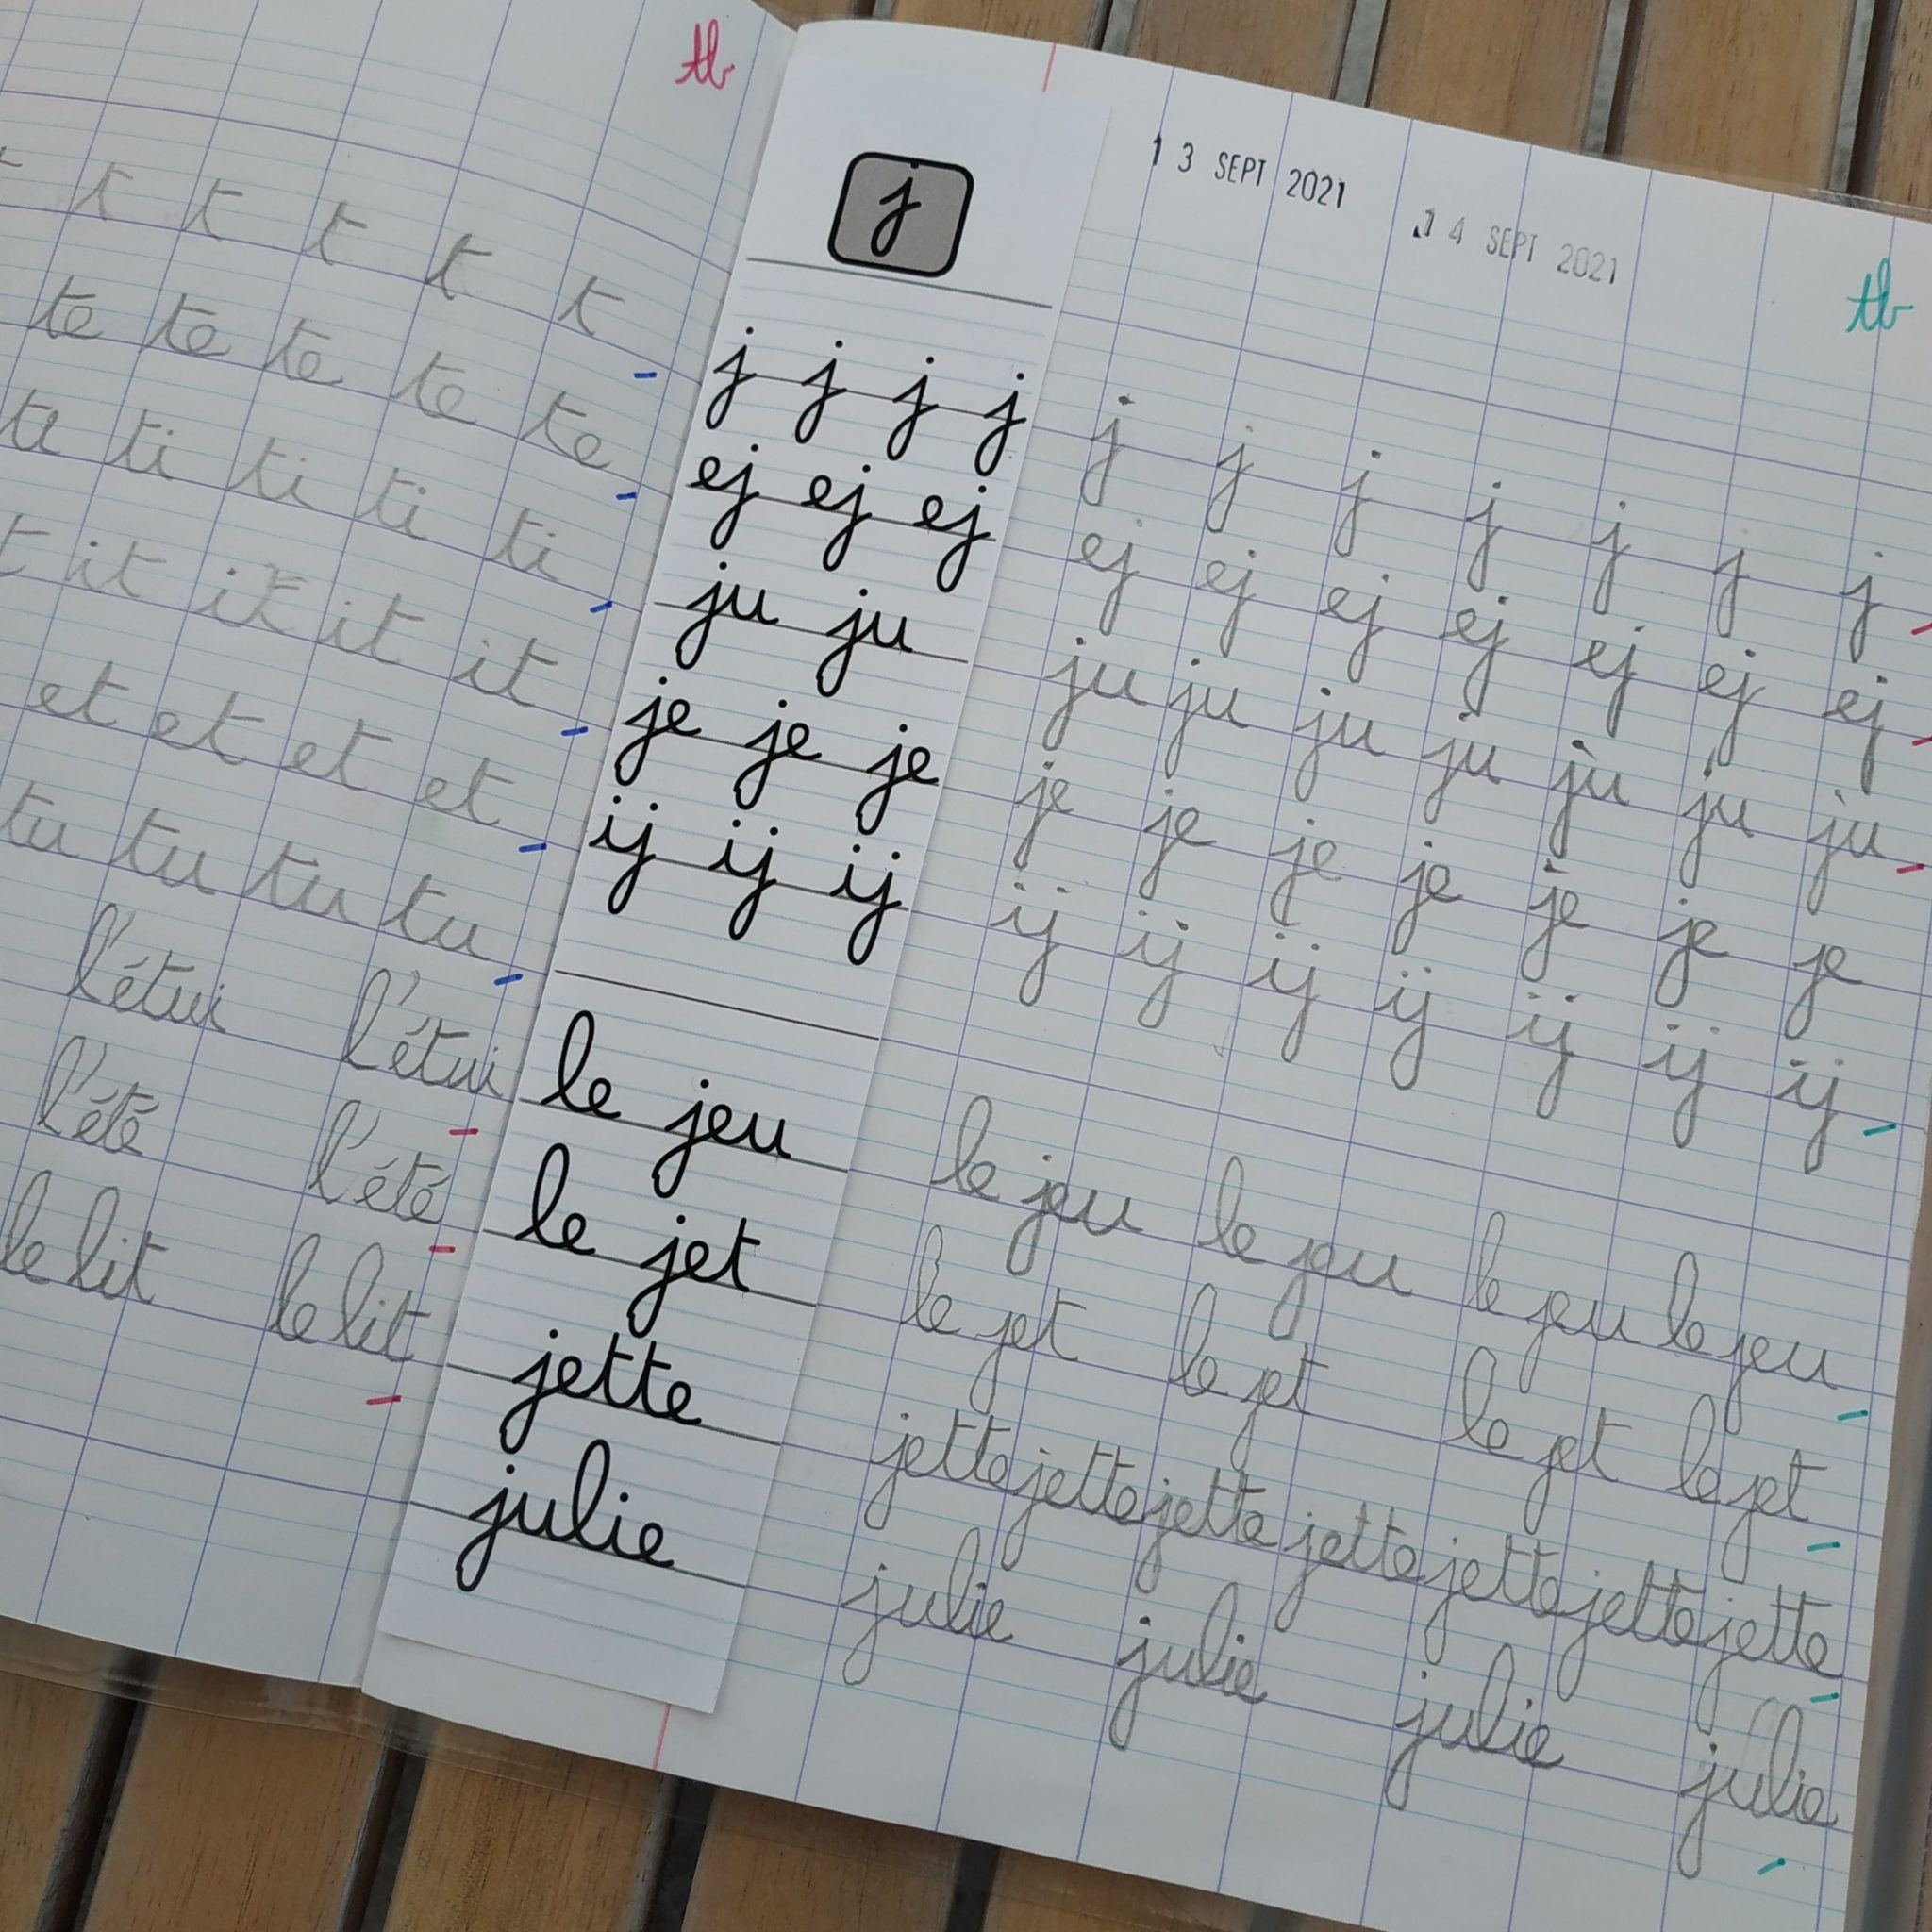 tb
t t t t t t
te te te te te
te ti ti ti ti
it it it it
et et et et
tu tu tu tu
l'étui l'étui
l'été l'été
le lit le lit
j
j j j j
ej ej ej
ju ju
je je je
ij ij ij
le jeu
le jet
jette
julie
13 SEPT 2021
14 SEPT 2021
tb
j j j j j j j
ej ej ej ej ej ej ej
ju ju ju ju ju ju ju
je je je je je je je
ij ij ij ij ij ij ij
le jeu le jeu le jeu le jeu
le jet le jet le jet le jet
jette jette jette jette jette jette jette
julie julie julie julie